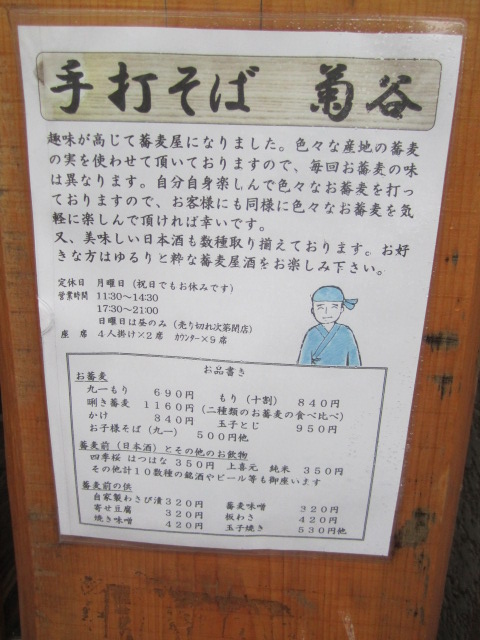 手打そば 菊谷
趣味が高じて蕎麦屋になりました。色々な産地の蕎麦
の実を使わせて頂いておりますので、毎回お蕎麦の味
は異なります。自分自身楽しんで色々なお蕎麦を打っ
ておりますので、お客様にも同様に色々なお蕎麦を気
軽に楽しんで頂ければ幸いです。
又、美味しい日本酒も数種取り揃えております。お好
きな方はゆるりと粋な蕎麦屋酒をお楽しみ下さい。
定休日 月曜日（祝日でもお休みです）
営業時間 11:30～14:30
17:30～21:00
日曜日は昼のみ（売り切れ次第閉店）
座 席 4人掛け×2席 カウンター×9席
お品書き
お蕎麦
九一もり 690円 もり（十割） 840円
唎き蕎麦 1160円（二種類のお蕎麦の食べ比べ）
かけ 840円 玉子とじ 950円
お子様そば（九一） 500円他
蕎麦前（日本酒）とその他のお飲物
四季桜 はつはな 350円 上喜元 純米 350円
その他計10数種の銘酒やビール等も御座います
蕎麦前の供
自家製わさび漬320円 蕎麦味噌 320円
寄せ豆腐 320円 板わさ 420円
焼き味噌 420円 玉子焼き 530円他